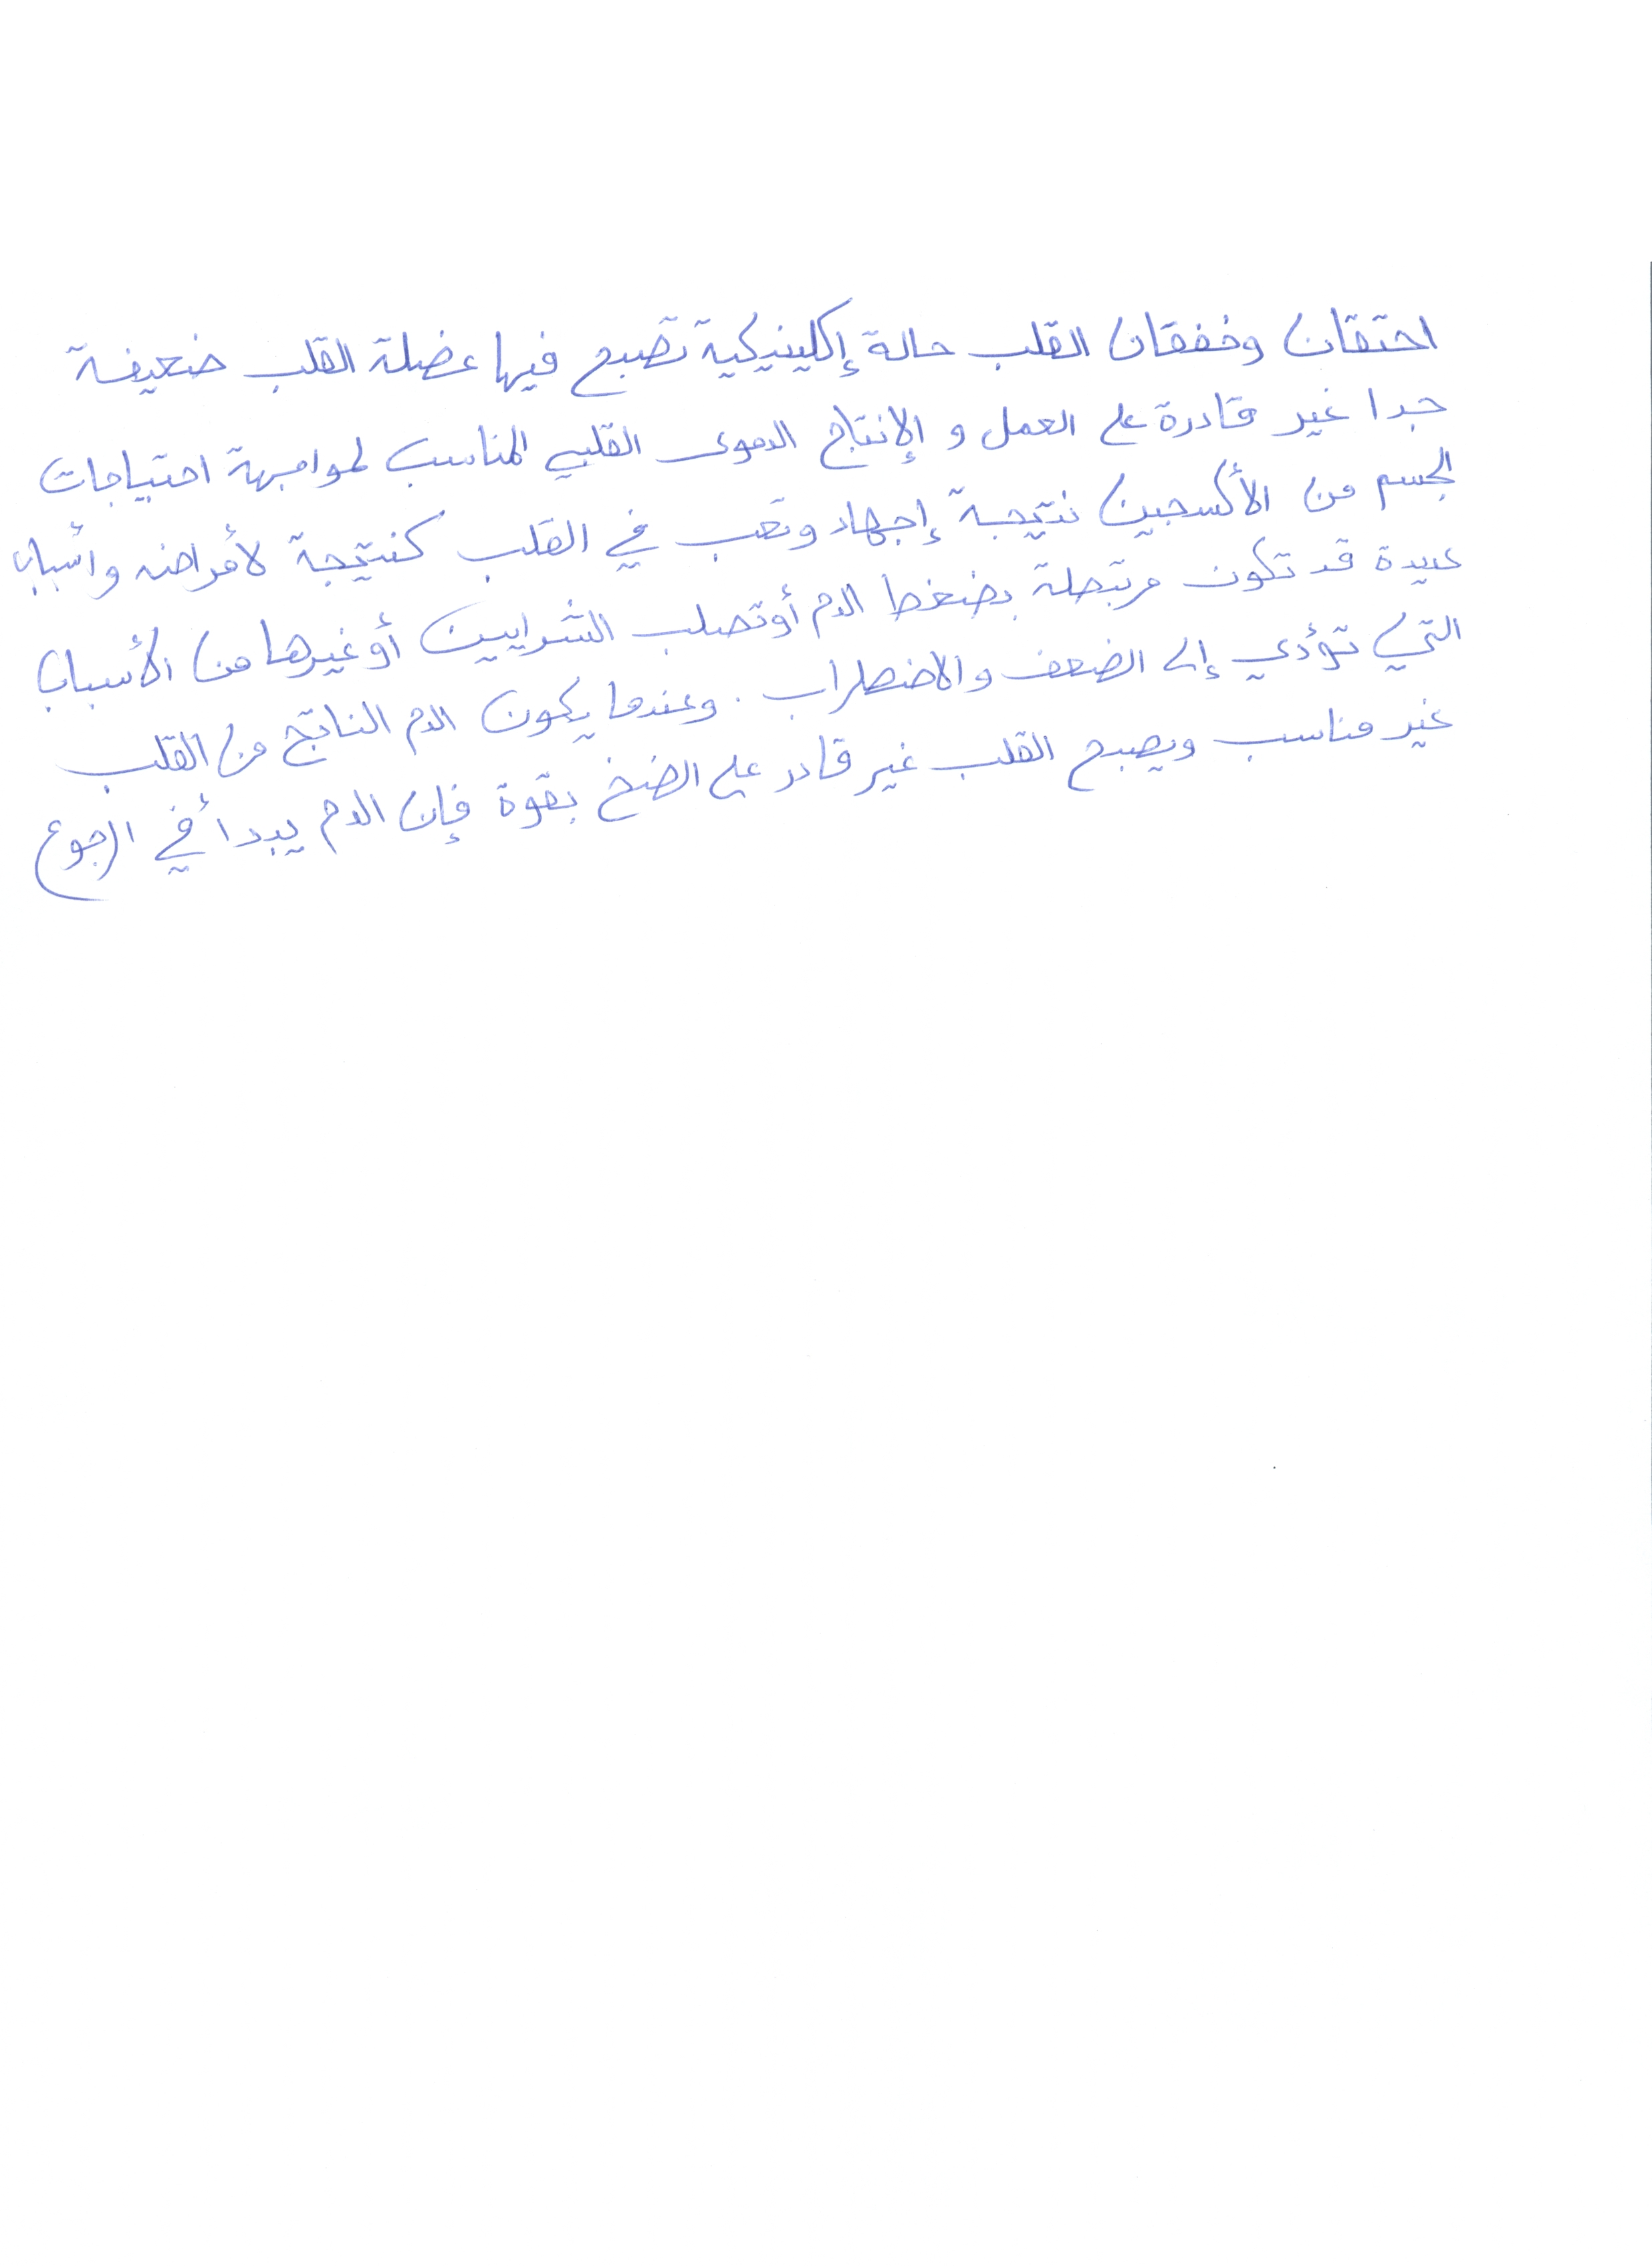 احتقان وخفقان القلب حالة إكلينيكية تصبح فيها عضلة القلب ضعيفة
جدا غير قادرة على العمل و الإنتاج الدموى القلبي المناسب لمواجهة احتياجات
الجسم من الأكسجين نتيجة إجهاد وتعب في القلب كنتيجة لأمراض وأسباب
عديدة قد تكون مرتبطة بضغط الدم أو تصلب الشرايين أو غيرها من الأسباب
التي تؤدي إلى الضعف والاضطراب. وعندما يكون الدم الناتج من القلب
غير مناسب ويصبح القلب غير قادر على الضخ بقوة فإن الدم يبدأ في الرجوع